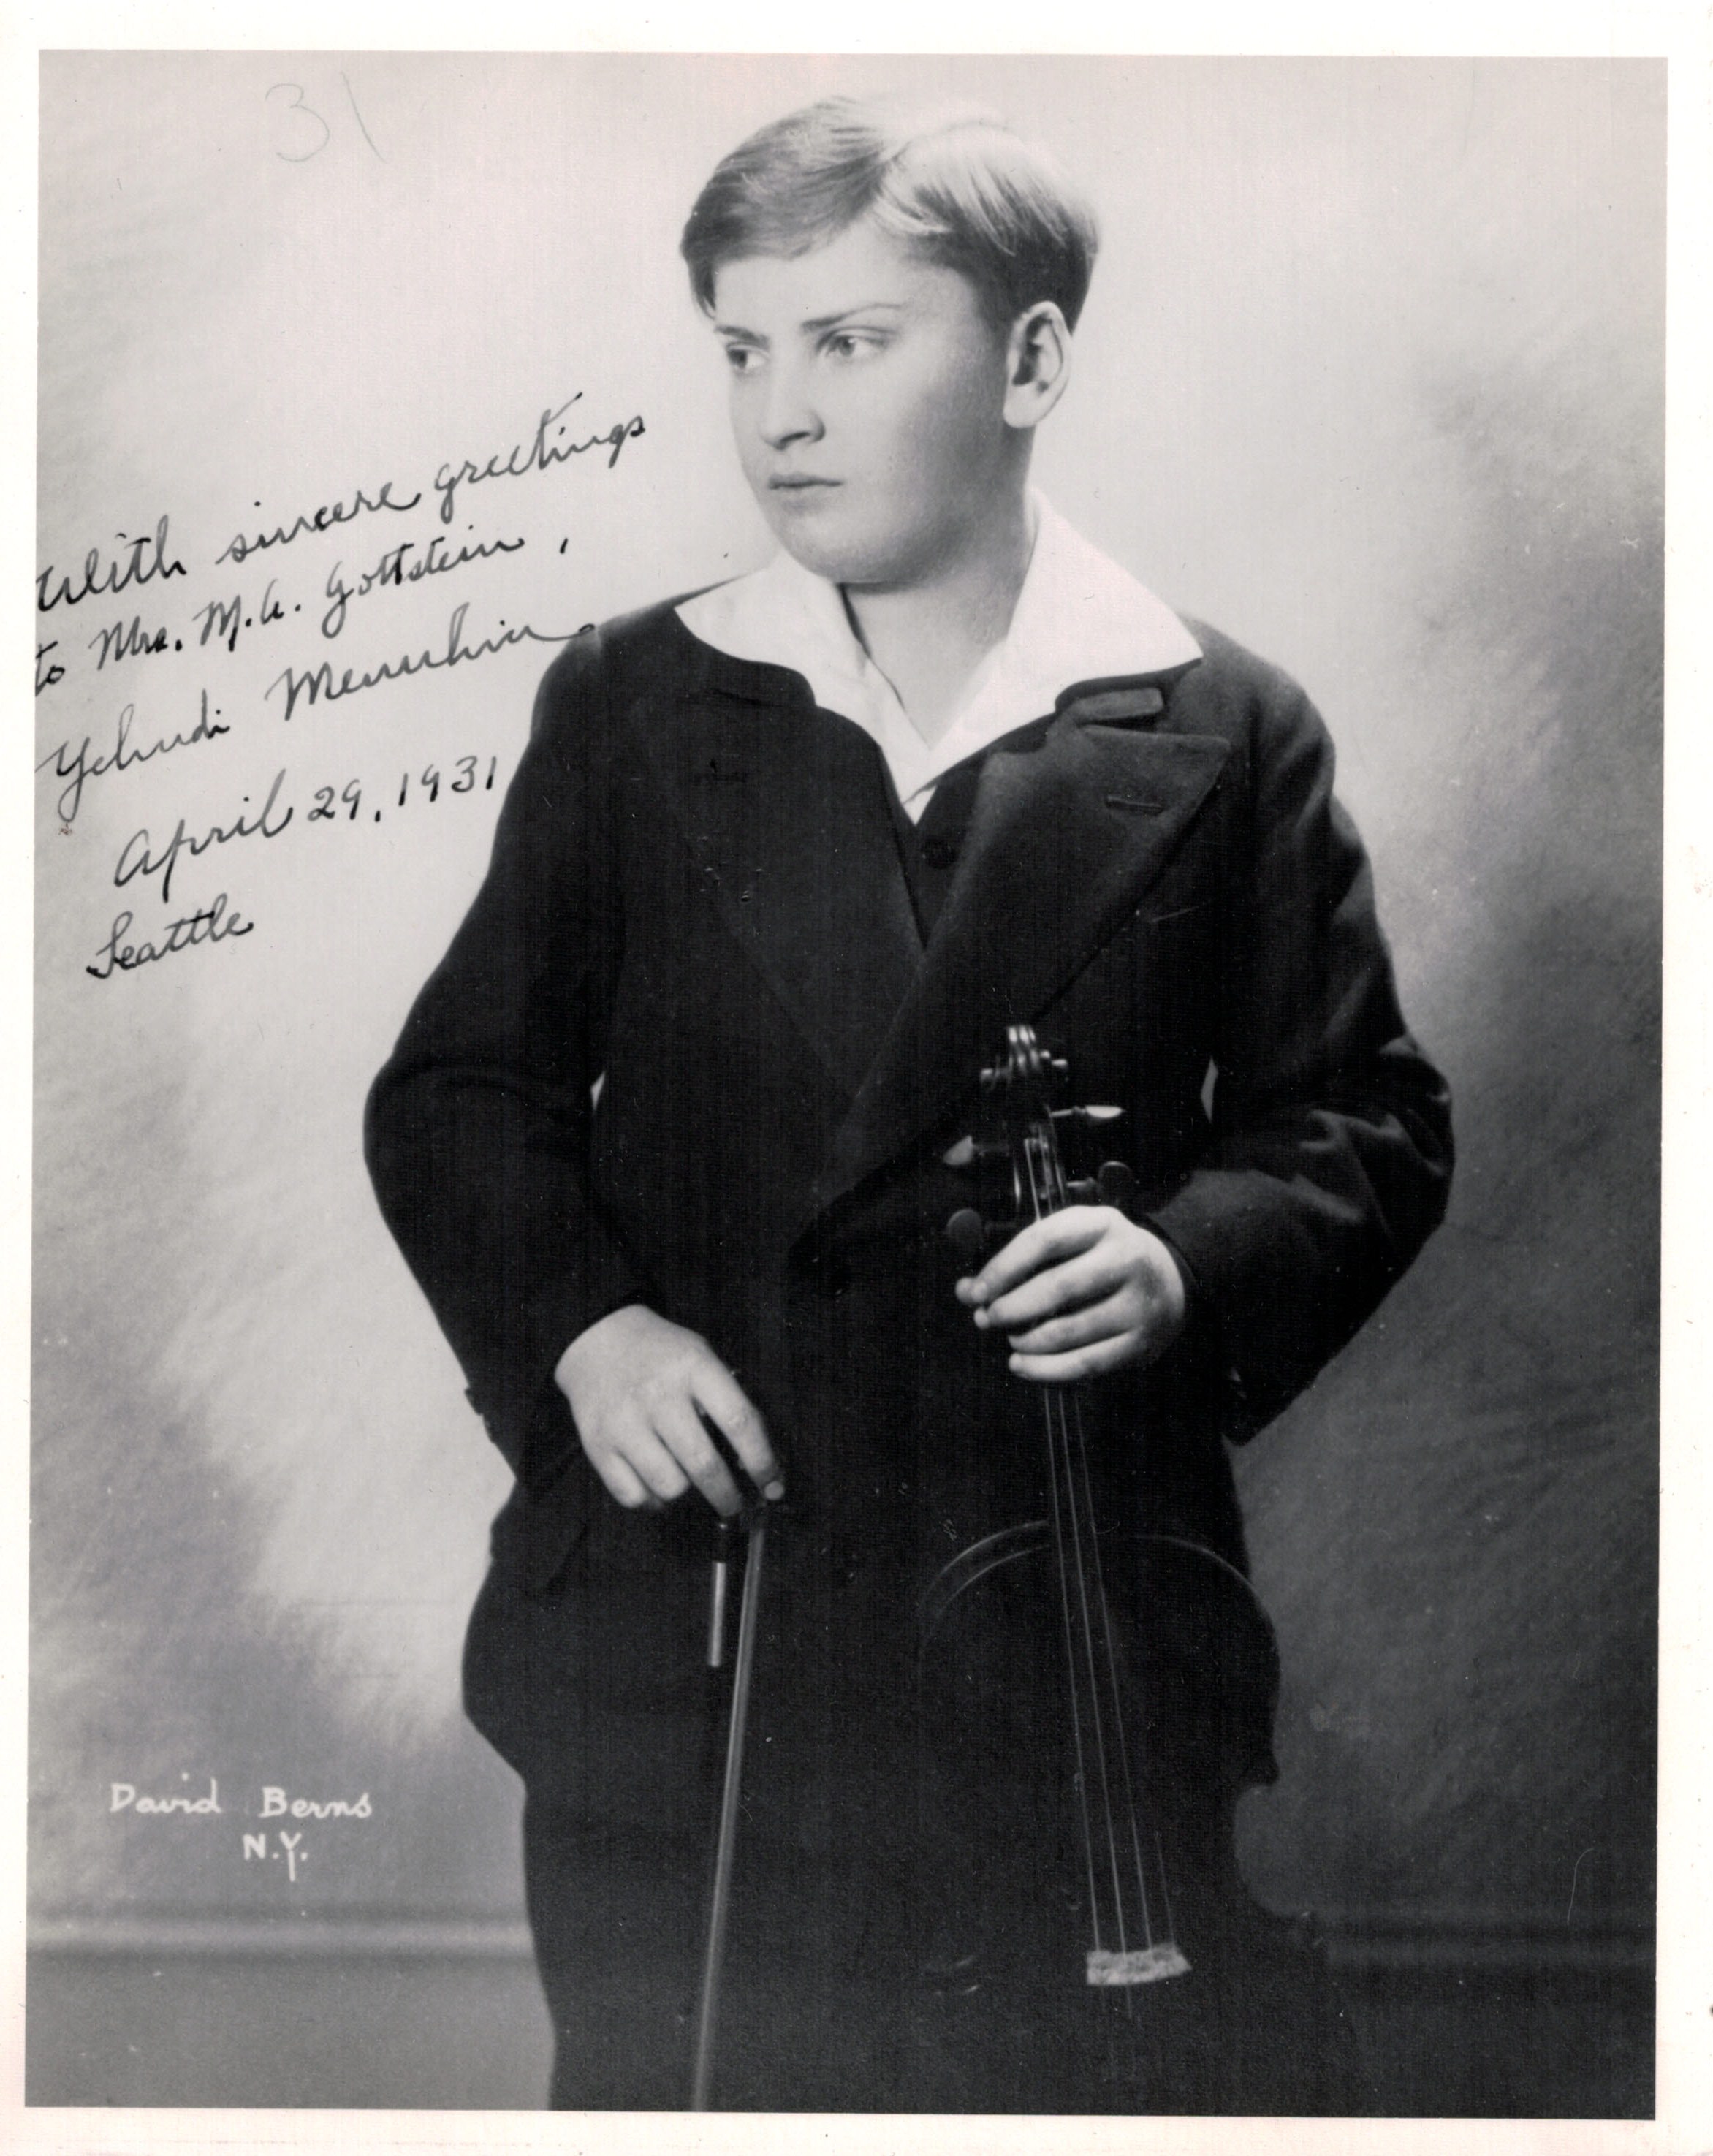 31
With sincere greetings
to Mrs. M.A. Gottstein,
Yehudi Menuhin
April 29, 1931
Seattle
David Berns
N.Y.